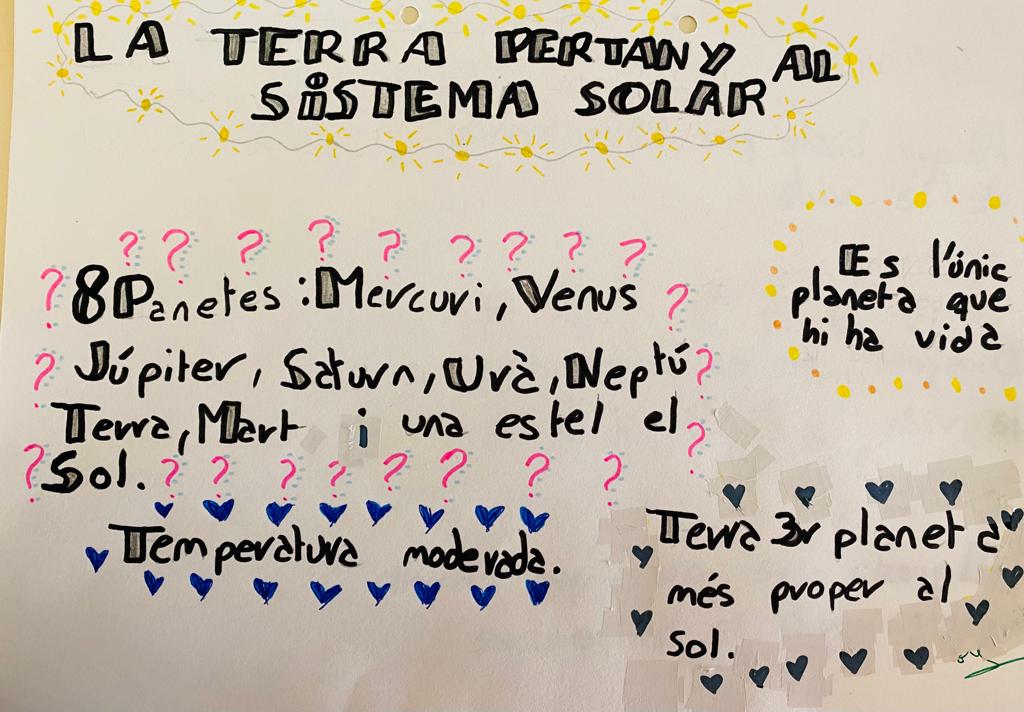 LA TERRA PERTANY AL
SISTEMA SOLAR
Es l'únic
planeta que
hi ha vida
8 Panetes : Mercuri, Venus
Júpiter, Saturn, Urà, Neptú
Terra, Mart i una estel el
Sol.
Temperatura moderada.
Terra 3r planeta
més proper al
sol.